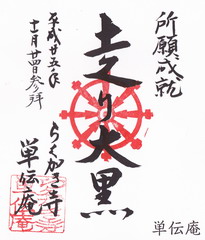 所願成就
走り大黒
らくがき寺
単伝庵
平成廿五年
十一月廿四日参拝
単伝庵